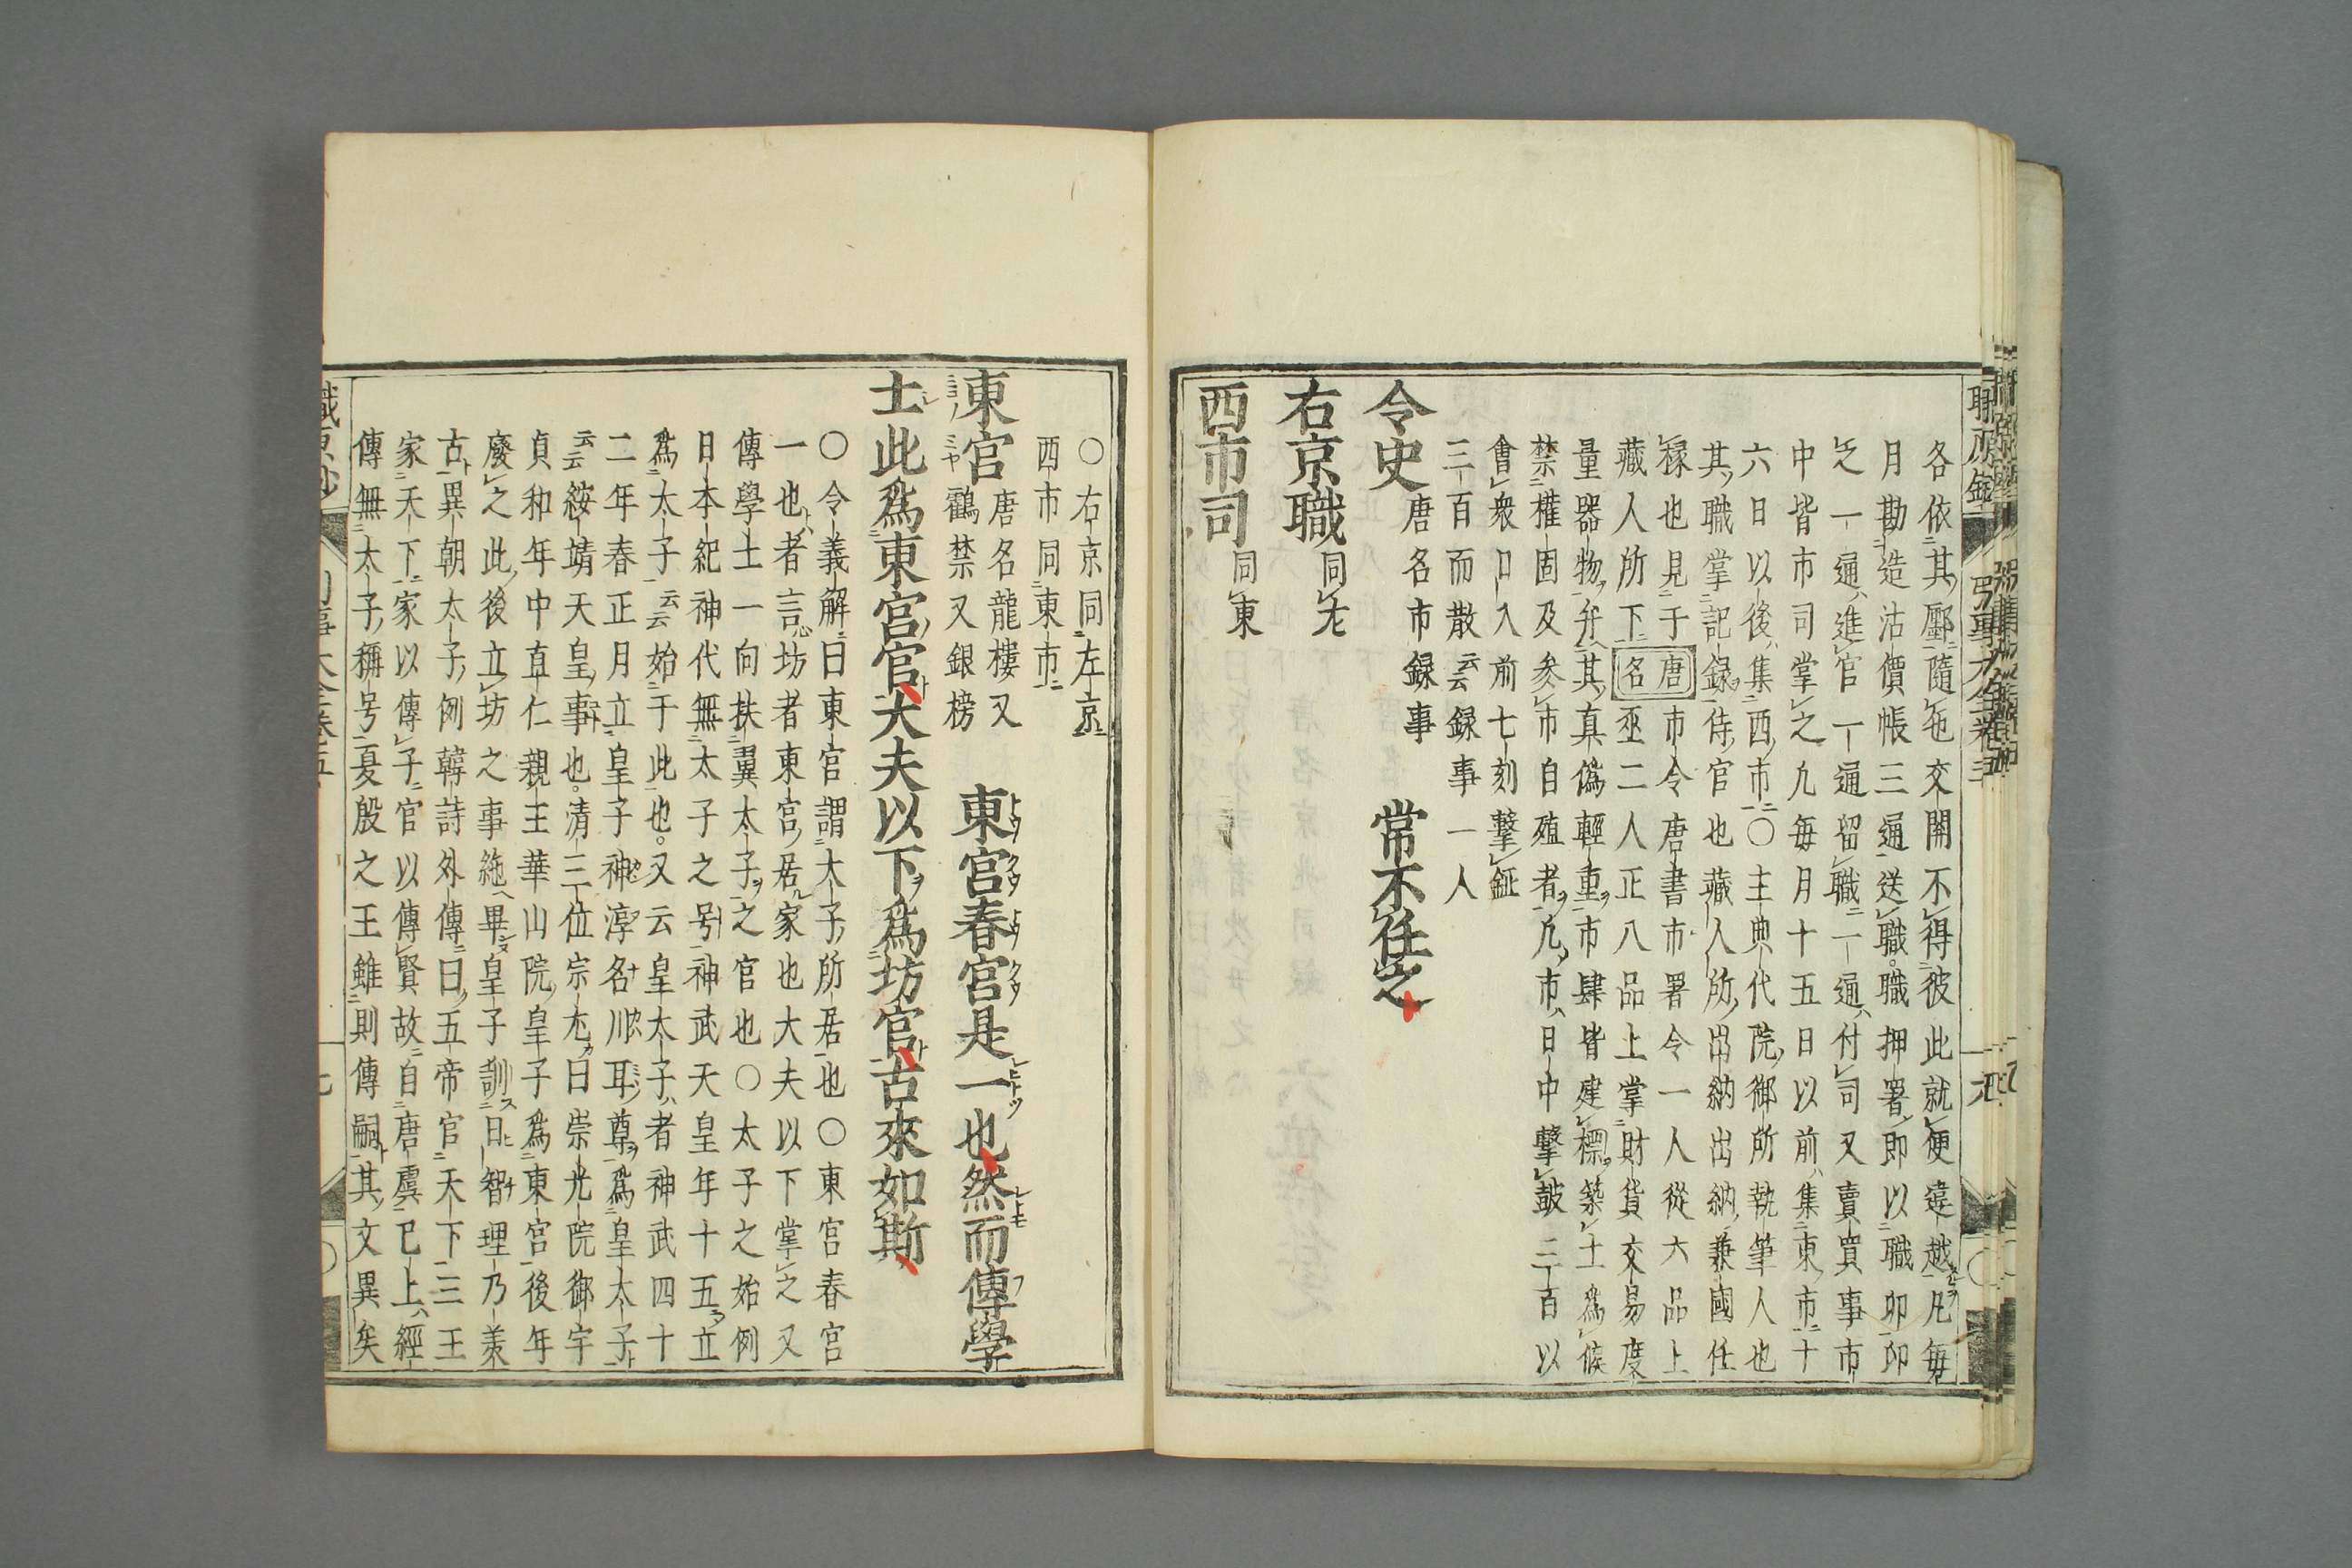 各依其鄽隨㐌交關不得彼此就便違越凢毎
月勘造沽價帳三通送職職押署即以職印印
之一通進官一通留職一通付司又賣買事市
中皆市司掌之九毎月十五日以前集東市十
六日以後集西市〇主典代院御所執筆人也
其職掌記録侍官也藏人所出納出納兼國任
禄也見于唐市令唐書市署令一人從六品上
藏人所下名丞二人正八品上掌財貨交易度
量器物弁其真偽輕重市肆皆建標築土爲候
禁權固及参市自殖者凢市日中撃皷三百以
會衆日入前七刻撃鉦
三百而散云云録事一人
令史 唐名市録事 常不任之
右京職 同左
西市司 同東
〇右京同左京
西市同東市
東宮 唐名龍樓又
鶴禁又銀榜
東宮春宮是一也然而傳學
士此爲東宮官大夫以下爲坊官古來如斯
〇令義解曰東宮謂太子所居也〇東宮春宮
一也者言坊者東宮居家也大夫以下掌之又
傳學士一向扶翼太子之官也〇太子之始例
日本紀神代無太子之号神武天皇年十五立
爲太子云云始于此也又云皇太子者神武四十
二年春正月立皇子神渟名川耳尊爲皇太子
云云綏靖天皇事也清三位宗尤曰崇光院御宇
貞和年中直仁親王華山院皇子爲東宮後年
廢之此後立坊之事絁畢皇子訓日智理乃羙
古異朝太子例韓詩外傳曰五帝官天下三王
家天下家以傳子官以傳賢故自唐虞已上經
傳無太子稱号夏殷之王雖則傳嗣其文異矣